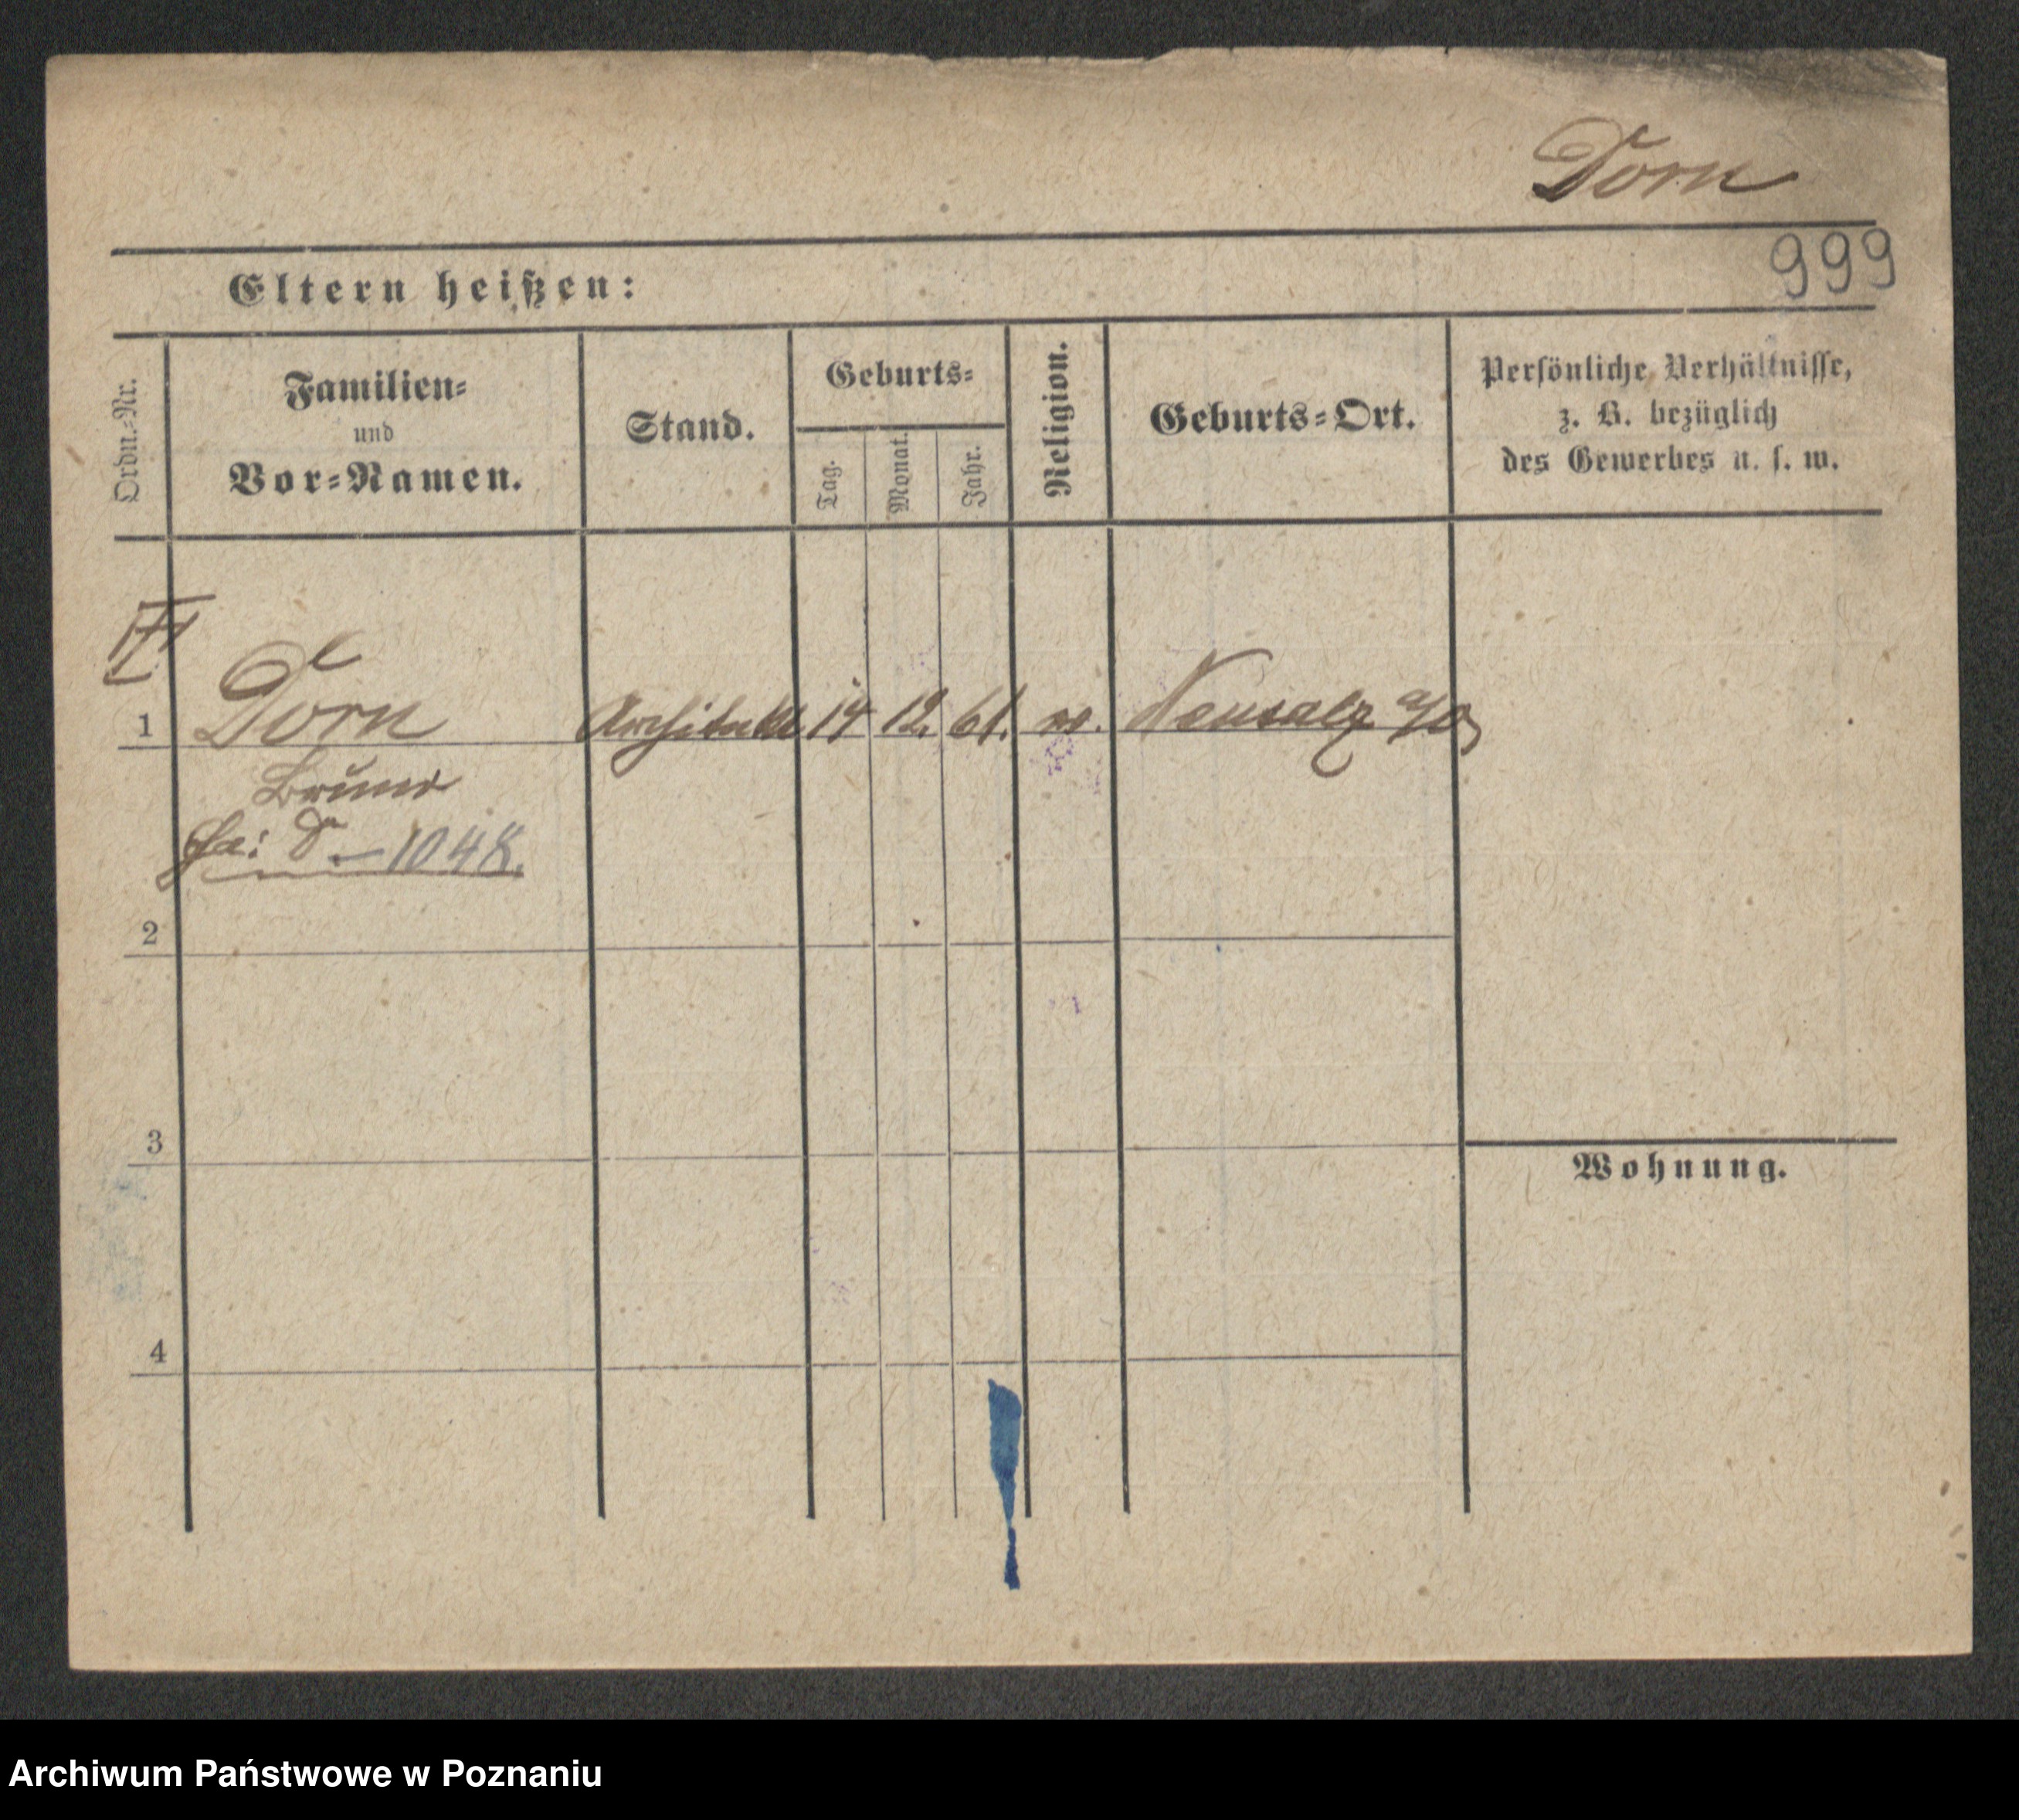 Dorn
999
Eltern heißen:
Ordn.-Nr.
Familien-
und
Vor-Namen.
Stand.
Geburts-
Tag.
Monat.
Jahr.
Religion.
Geburts-Ort.
Persönliche Verhältnisse,
z. B. bezüglich
des Gewerbes u. s. w.
1 Dorn Architekt 14 12. 61. Neusalz a/O
Bruno
1048.
2
3
Wohnung.
4
Archiwum Państwowe w Poznaniu